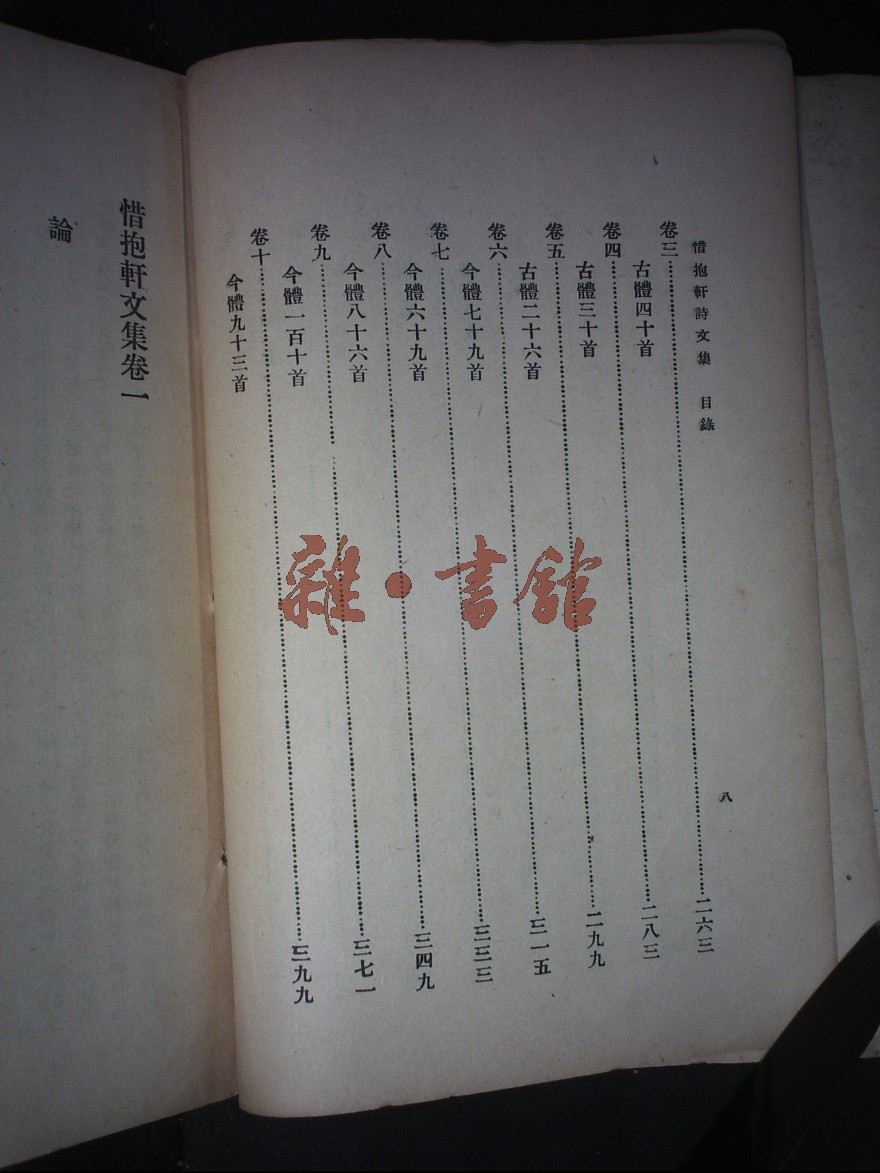 惜抱軒詩文集　目錄
八
卷三……二六三
古體四十首
卷四……二八三
古體三十首
卷五……二九九
古體二十六首
卷六……三一五
今體七十九首
卷七……三三三
今體六十九首
卷八……三四九
今體八十六首
卷九……三七一
今體一百十首
卷十……三九九
今體九十三首
惜抱軒文集卷一
論
雜·書館